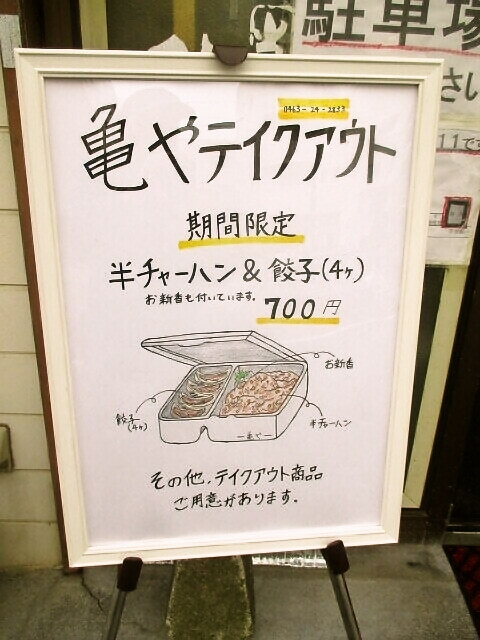 駐車場
さい
11です
0463-24-2833
亀やテイクアウト
期間限定
半チャーハン & 餃子(4ヶ)
お新香も付いています。
700円
お新香
餃子
(4ヶ)
半チャーハン
ー亀やー
その他、テイクアウト商品
ご用意があります。